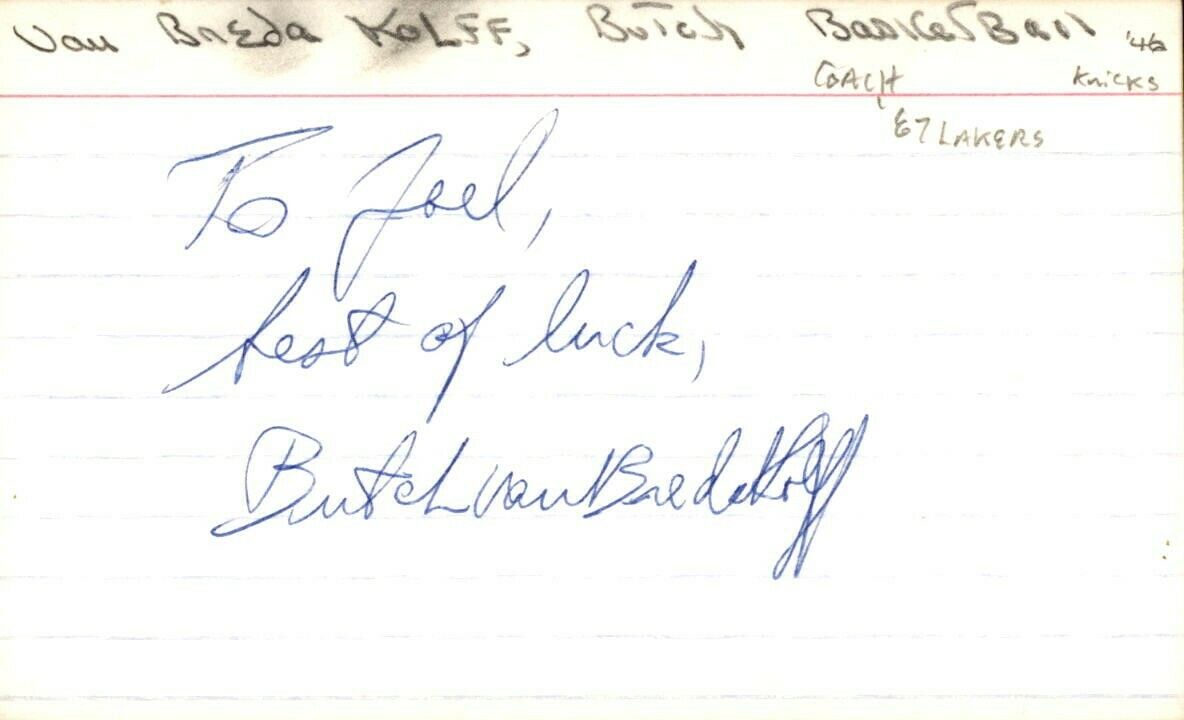 van Breda Kolff, Butch Basketball '46
COACH Knicks
67 LAKERS
To Joel,
best of luck,
Butch van Breda Kolff